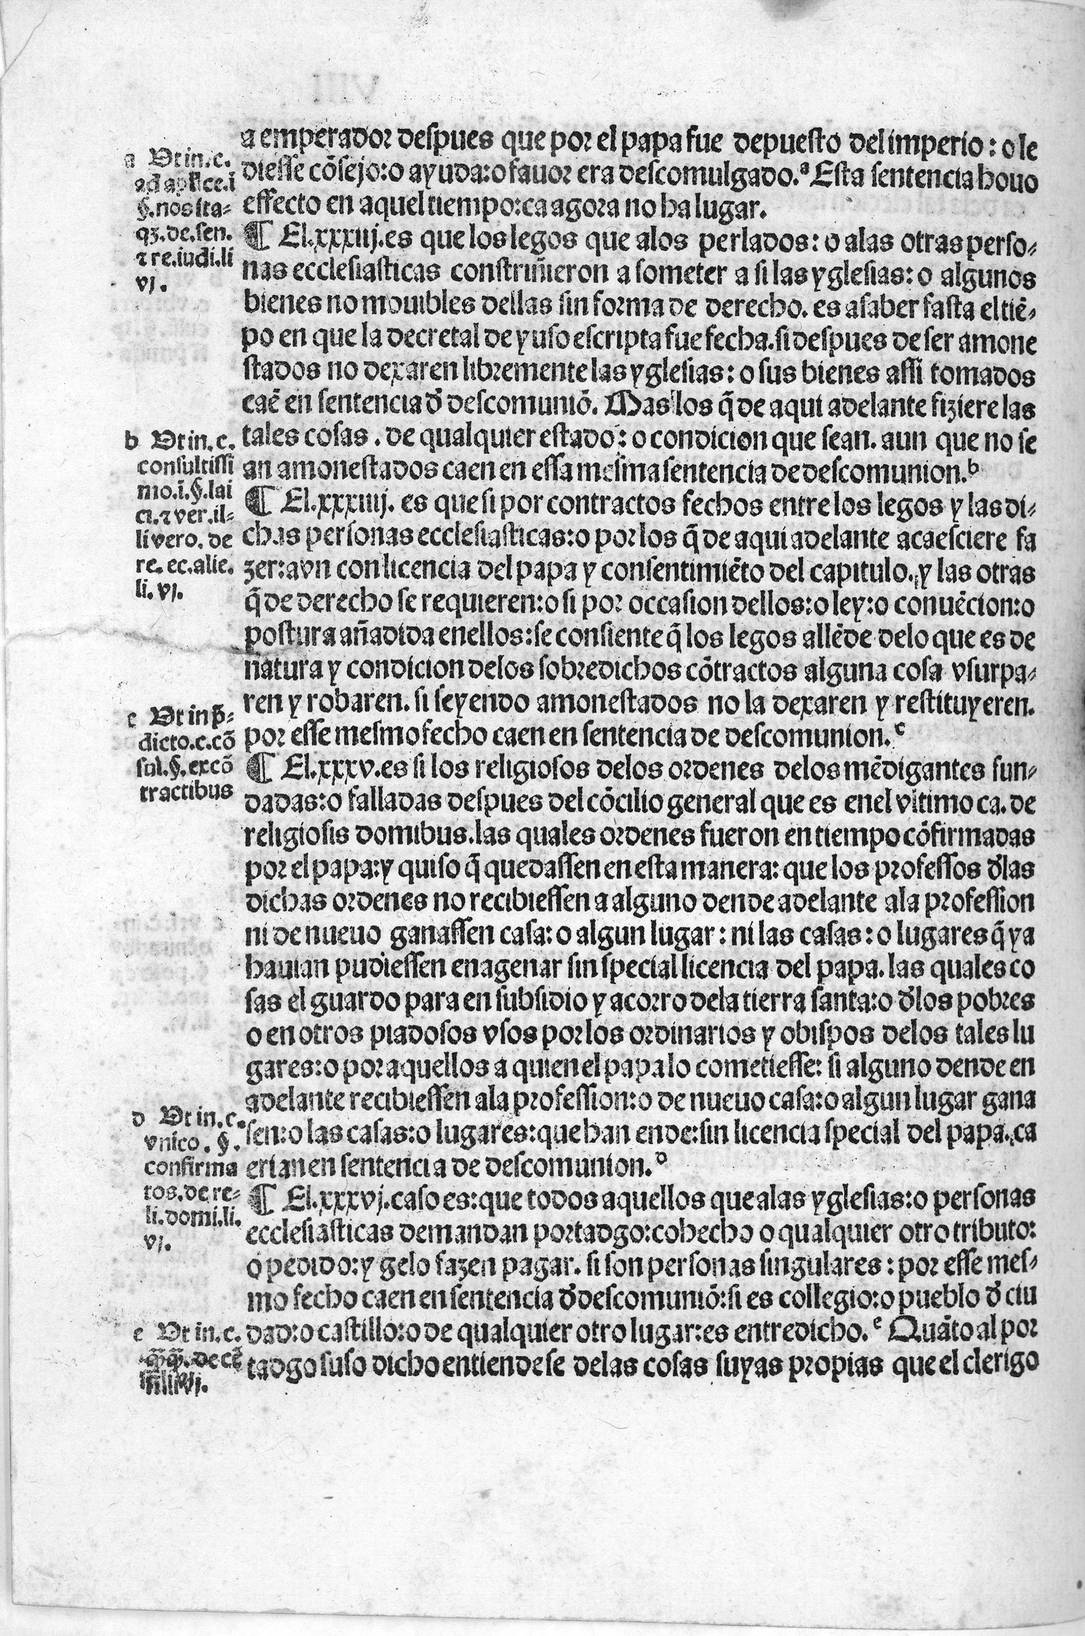 a emperador despues que por el papa fue depuesto del imperio : o le
diesse cõsejo:o ayuda:o fauor era descomulgado.ª Esta sentencia houo
effecto en aquel tiempo:ca agora no ha lugar.
¶ El.xxxiij.es que los legos que alos perlados: o alas otras perso-
nas ecclesiasticas constriñeron a someter a si las yglesias: o algunos
bienes no mouibles dellas sin forma de derecho. es a saber fasta el tiẽ-
po en que la decretal de yuso escripta fue fecha.si despues de ser amone
stados no dexaren libremente las yglesias: o sus bienes assi tomados
caẽ en sentencia đ descomuniõ. Mas los q̃ de aqui adelante fiziere las
tales cosas . de qualquier estado : o condicion que sean. aun que no se
an amonestados caen en essa mesma sentencia de descomunion.b
¶ El.xxxiiij. es que si por contractos fechos entre los legos y las di-
chas personas ecclesiasticas:o por los q̃ de aqui adelante acaesciere fa
zer:avn con licencia del papa y consentimiẽto del capitulo. y las otras
q̃ de derecho se requieren:o si por occasion dellos:o ley:o conuẽcion:o
postura añadida enellos:se consiente q̃ los legos allẽde delo que es de
natura y condicion delos sobredichos cõtractos alguna cosa vsurpa-
ren y robaren. si seyendo amonestados no la dexaren y restituyeren.
por esse mesmo fecho caen en sentencia de descomunion.c
¶ El.xxxv.es si los religiosos delos ordenes delos mẽdigantes fun-
dadas:o falladas despues del cõcilio general que es enel vltimo ca. de
religiosis domibus.las quales ordenes fueron en tiempo cõfirmadas
por el papa:y quiso q̃ quedassen en esta manera: que los professos đlas
dichas ordenes no recibiessen a alguno dende adelante ala profession
ni de nueuo ganassen casa: o algun lugar : ni las casas : o lugares q̃ ya
hauian pudiessen enagenar sin special licencia del papa. las quales co
sas el guardo para en subsidio y acorro dela tierra santa:o đlos pobres
o en otros piadosos vsos por los ordinarios y obispos delos tales lu
gares:o por aquellos a quien el papa lo cometiesse: si alguno dende en
adelante recibiessen ala profession:o de nueuo casa:o algun lugar gana
sen:o las casas:o lugares:que han ende:sin licencia special del papa.ca
erian en sentencia de descomunion.d
¶ El.xxxvj.caso es:que todos aquellos que alas yglesias:o personas
ecclesiasticas demandan portadgo:cohecho o qualquier otro tributo:
o pedido:y gelo fazen pagar. si son personas singulares : por esse mes-
mo fecho caen en sentencia đ descomuniõ:si es collegio:o pueblo đ ciu
dad:o castillo:o de qualquier otro lugar:es entredicho.e Quãto al por
tadgo suso dicho entiendese delas cosas suyas propias que el clerigo
a Vt in.c.
ad aplice.ĩ
§.nos ita-
qʒ.de.sen.
⁊ re.iudi.li
vj.
b Vt in.c.
consultissi
mo.ĩ.§.lai
ci.⁊ ver.il-
li vero. de
re. ec.alie.
li. vj.
c Vt in p̃-
dicto.c.cõ
sul.§.ex cõ
tractibus
d Vt in.c.
vnico. §.
confirma
tos.de re-
li.domi.li.
vj.
e Vt in.c.
q̃q̃. de cẽ